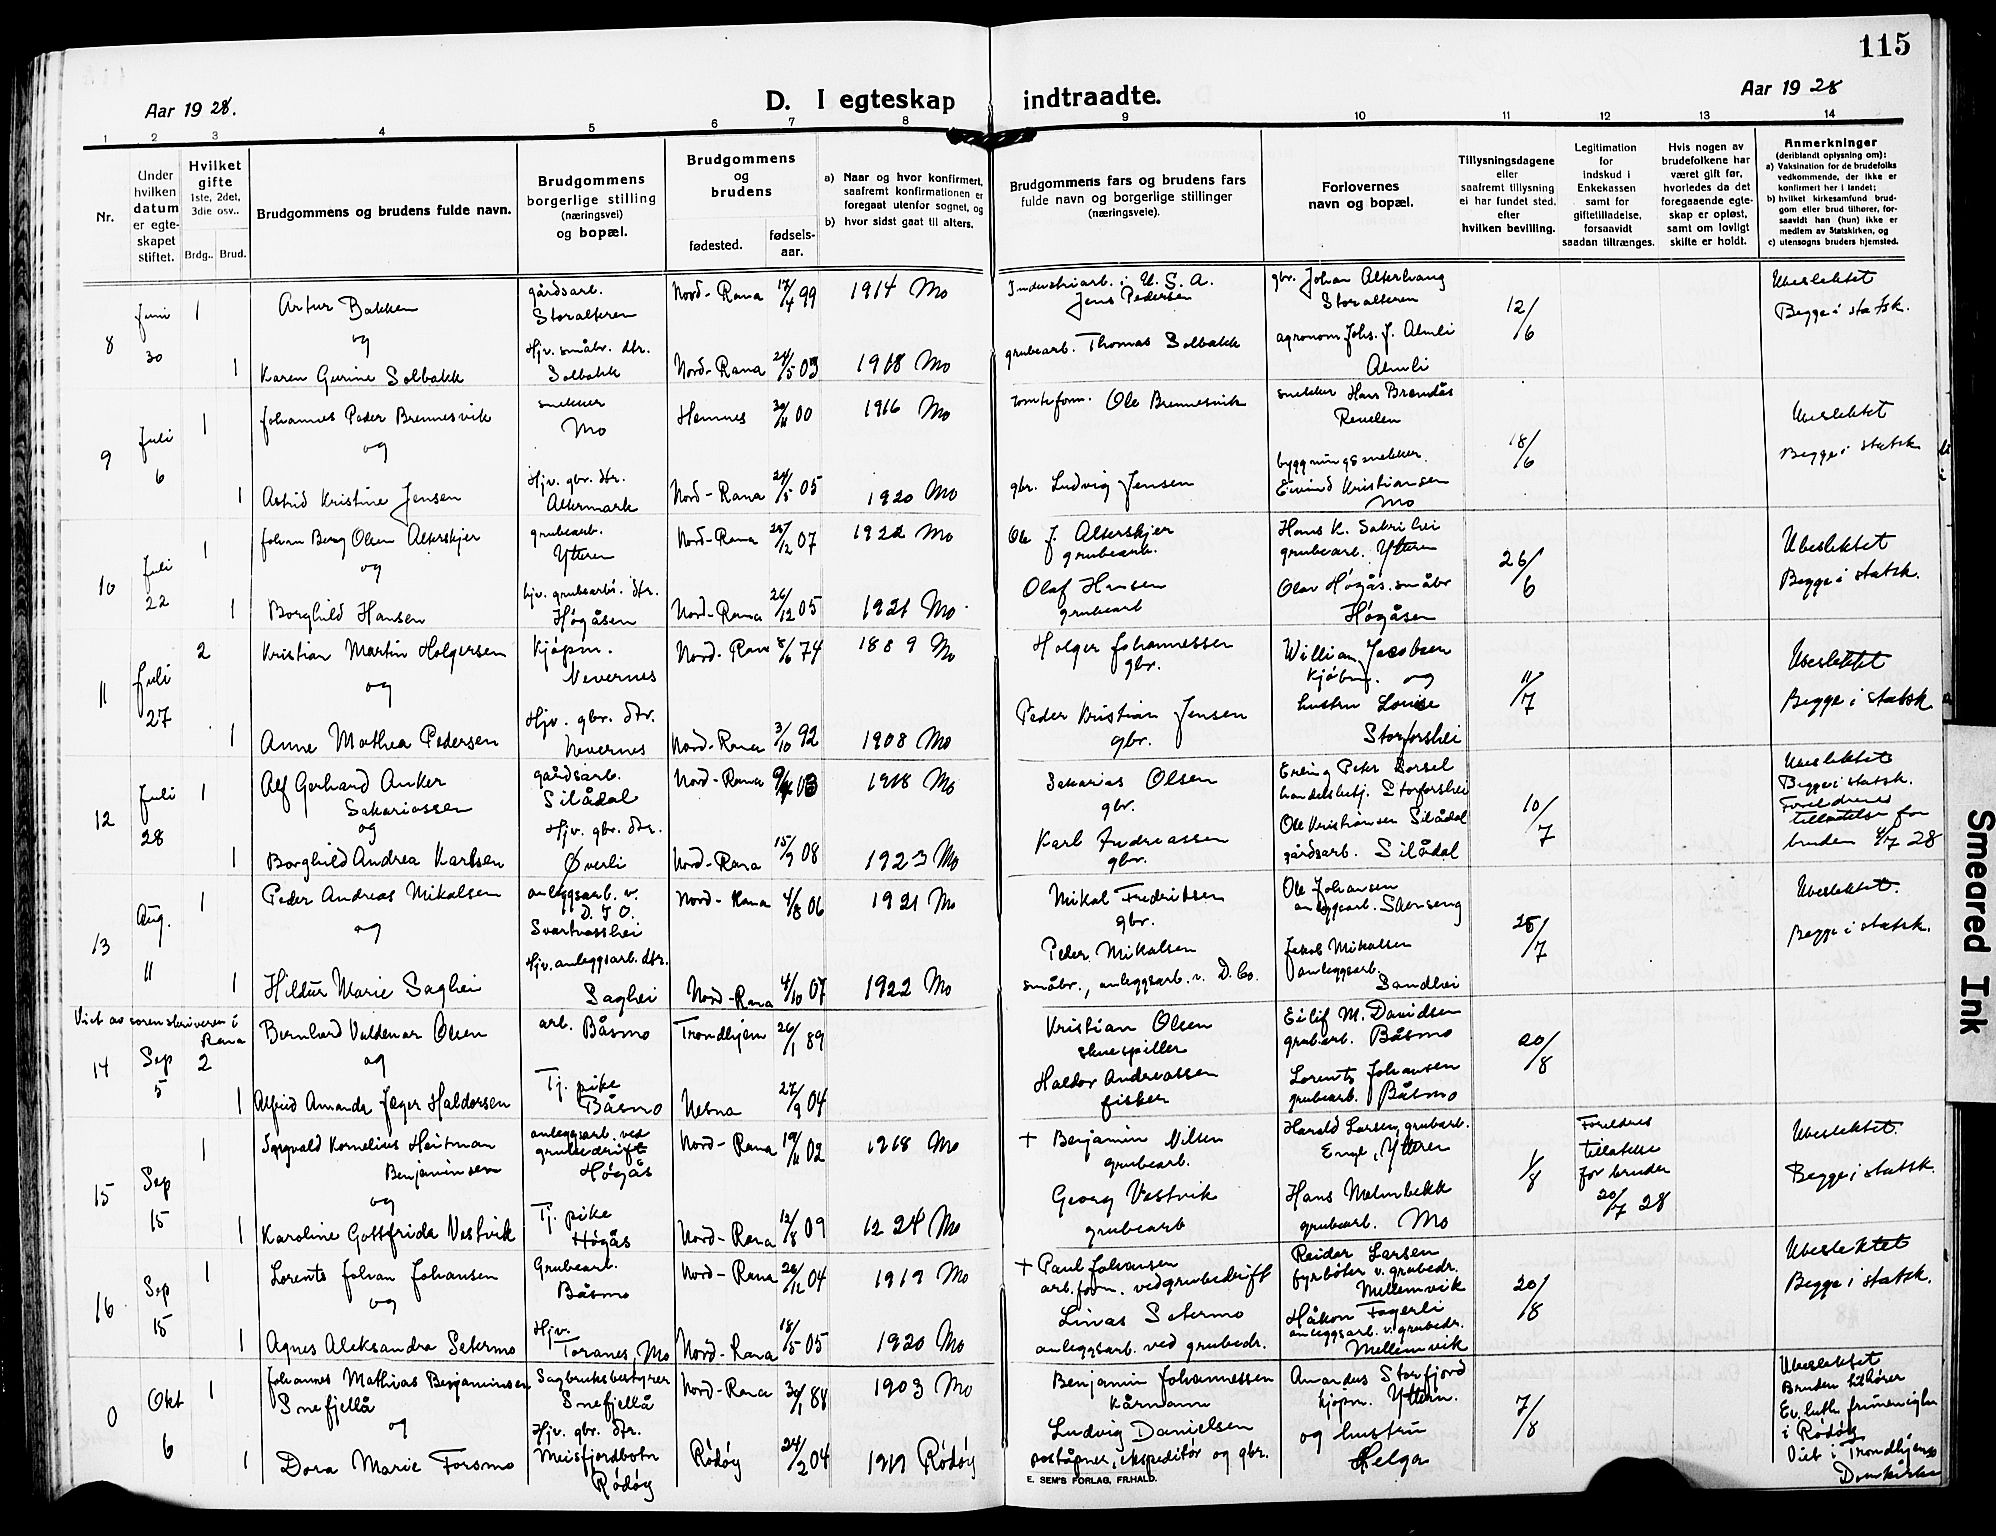 115
Aar 1928.
D. I egteskap indtraadte.
Aar 1928
1 2 3 4 5 6 7 8 9 10 11 12 13 14
Nr.
Under hvilken datum er egteskapet stiftet.
Hvilket gifte 1ste, 2det, 3die osv..
Brdg.. Brud.
Brudgommens og brudens fulde navn.
Brudgommens borgerlige stilling (næringsvei) og bopæl.
Brudgommens og brudens
fødested. fødselsaar.
a) Naar og hvor konfirmert, saafremt konfirmationen er foregaat utenfor sognet, og
b) hvor sidst gaat til alters.
Brudgommens fars og brudens fars fulde navn og borgerlige stillinger (næringsveie).
Forlovernes navn og bopæl.
Tillysningsdagene eller saafremt tillysning ei har fundet sted, efter hvilken bevilling.
Legitimation for indskud i Enkekassen samt for giftetilladelse, forsaavidt saadan tiltrænges.
Hvis nogen av brudefolkene har været gift før, hvorledes da det foregaaende egteskap er opløst, samt om lovligt skifte er holdt.
Anmerkninger (deriblandt oplysning om):
a) Vaksination for de brudefolks vedkommende, der ikke er konfirmert her i landet;
b) hvilket kirkesamfund brudgom eller brud tilhører, forsaavidt han (hun) ikke er medlem av Statskirken, og
c) utensogns bruders hjemsted.
8 Juni 30
1 Artur Bakken gårdsarb. Storalteren Nord-Rana 17/4 99 1914 Mo Industriarb. i U.S.A. Jens Pedersen gbr. Johan Alterhaug Storalteren 12/6 Ubeslektet Begge i statsk.
og
1 Karen Gurine Solbakk Hjv. småbr. dtr. Solbakk Nord-Rana 24/5 03 1918 Mo grubearb. Thomas Solbakk agronom Johs. J. Almli Almli
9 Juli 6
1 Johannes Peder Brennesvik snekker Mo Hemnes 00 1916 Mo tomteform. Ole Brennesvik snekker Hans Brendås Revelen 18/6 Ubeslektet Begge i statsk
og
1 Astrid Kristine Jensen Hjv. gbr. dtr. Altermark Nord-Rana 24/5 05 1920 Mo gbr. Ludvig Jensen byggningssnekker. Eivind Kristiansen Mo
10 Juli 22
1 Johan Berg Olsen Alterskjer grubearb. Ytteren Nord-Rana 28/12 07 1922 Mo Ole J. Alterskjer grubearb. Hans K. grubearb. Ytteren 26/6 Ubeslektet Begge i statsk.
og
1 Borghild Hansen hjv. grubearb. dtr. Høgåsen Nord-Rana 26/12 05 1921 Mo Olaf Hansen grubearb Olav Høgås. småbr Høgåsen
11 Juli 27
2 Kristian Martin Holgersen kjøpm. Nevernes Nord-Rana 8/6 74 1889 Mo Holger Johannessen gbr. William Jacobsen kjøbm. og hustru Louise Storforshei 11/7 Ubeslektet Begge i statsk
og
1 Anne Mathea Pedersen Hjv. gbr. dtr. Nevernes Nord-Rana 3/10 92 1908 Mo Peder Kristian Jensen gbr.
12 Juli 28
1 Alf Gerhard Anker Sakariassen gårdsarb. Silådal Nord-Rana 03 1918 Mo Sakarias Olsen gbr. Erling Peter Forsel handelsbetj. Storforshei 10/7 Ubeslektet Begge i statsk. Foreldrenes tillatelse for bruden 4/7 28
og
1 Borghild Andrea Karlsen Hjv. gbr. dtr. Øverli Nord-Rana 15/9 08 1923 Mo Karl Andreassen gbr. Ole Kristiansen Silådal gårdsarb. Silådal
13 Aug. 11
1 Peder Andreas Mikalsen anleggsarb. v. Svartvasshei Nord-Rana 4/8 06 1921 Mo Mikal Fredriksen gbr. Ole Johansen anleggsarb. 25/7 Ubeslektet. Begge i statsk.
og
1 Hildur Marie Saghei Hjv. anleggsarb. dtr. Saghei Nord-Rana 4/10 07 1922 Mo Peder Mikalsen småbr., anleggsarb. v. D. Co. Jakob Mikalsen anleggsarb. Sandhei
Viet av sorenskriveren i Rana
14 Sep 5
2 Bernhard Valdemar Olsen arb. Båsmo Trondhjem 26/1 89 Kristian Olsen skuespiller Eilif M. Davidsen grubarb. Båsmo 20/8
og
1 Alfrid Amanda Jæger Haldorsen Tj. pike Båsmo Nesna 27/9 04 Haldor Andreassen fisker Lorents Johansen grubearb. Båsmo
15 Sep 15
1 Sigvald Kornelius Heitman Benjaminsen anleggsarb. ved grubedrift Høgås Nord-Rana 19/11 02 1918 Mo + Benjamin Nilsen grubearb. Harald Larsen, grubarb. Enge, Ytteren 1/8 Foreldres tillatelse for bruden 20/7 28 Ubeslektet. Begge i statsk.
og
1 Karoline Gottfrida Vestvik Tj. pike Høgås Nord-Rana 12/8 09 1224 Mo Georg Vestvik grubearb Hans Malmbekk grubearb. Mo
16 Sep 15
1 Lorents Johan Johansen Grubearb. Båsmo Nord-Rana 26/12 04 1919 Mo + Paul Johansen arb.form. ved grubedrift Reidar Larsen fyrbøter v. grubedr. Mellemvik 20/8 Ubeslektet Begge i statsk.
og
1 Agnes Aleksandra Setermo Hjv. Toranes, Mo Nord-Rana 18/5 05 1920 Mo Linas Setermo anleggsarb. ved grubedr. Håkon Fagerli anleggsarb. v. grubedr. Mellemvik
0 Okt 6
1 Johannes Mathias Benjaminsen Snefjellå Sagbruksbestyrer Snefjellå Nord-Rana 30/1 88 1903 Mo Benjamin Johannessen kårmann Amandus Storfjord kjøpm. Ytteren. 7/8 Ubeslektet Bruden tilhører Ev. luth. frimenighet i Rödöy Viet i Trondhjems Domkirke
og
1 Dora Marie Forsmo Hjv. gbr. dtr. Meisfjordbotn Rödöy Rödöy 24/2 04 1919 Rödöy Ludvig Danielsen poståpner, ekspeditør og gbr. og hustru Helga
E. SEM'S FORLAG, FR.HALD.
Smeared Ink